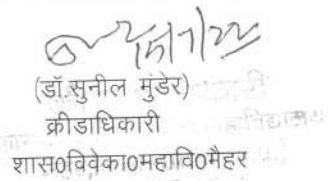 (डॉ.सुनील मुंडेर)
क्रीडाधिकारी
शास0विवेका0महावि0मैहर